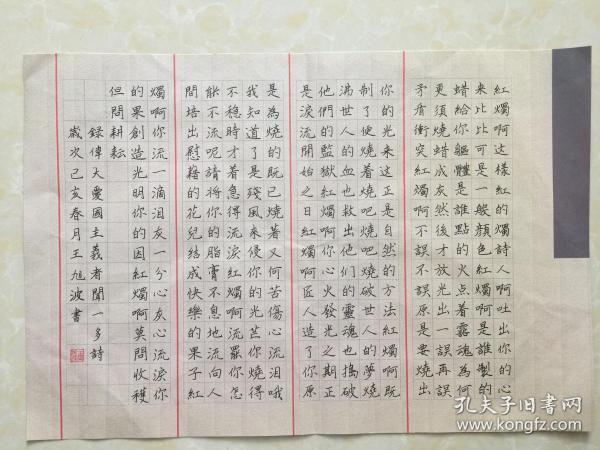 紅燭啊這樣紅的燭詩人啊吐出你的心
来比比可是一般顏色紅燭啊是誰製的
蜡給你軀體是誰點的火点着靈魂為何
更須燒蜡成灰然後才放光出一誤再誤
矛盾衝突紅燭啊不誤不誤原是要燒出
你的光来這正是自然的方法紅燭啊既
制了便燒着吧燒吧燒破世人的夢燒
沸世人的血也救出他們的靈魂也搗破
他們的監獄紅燭啊你心火發光之期正
是淚流開始之日紅燭啊匠人造了你原
是為燒的既已燒着又何苦傷心流泪哦
我知道了是殘風来侵你的光芒你燒得
不穩時才着急得流淚紅燭啊流罷你怎
能不流呢請將你的脂膏不息地流向人
間培出慰藉的花兒結成快樂的果子紅
燭啊你流一滴泪灰一分心灰心流淚你
的果創造光明你的因紅燭啊莫問收穫
但問耕耘
錄偉大愛國主義者聞一多詩
歲次己亥春月王旭波書
孔夫子旧書网
www.kongfz.com